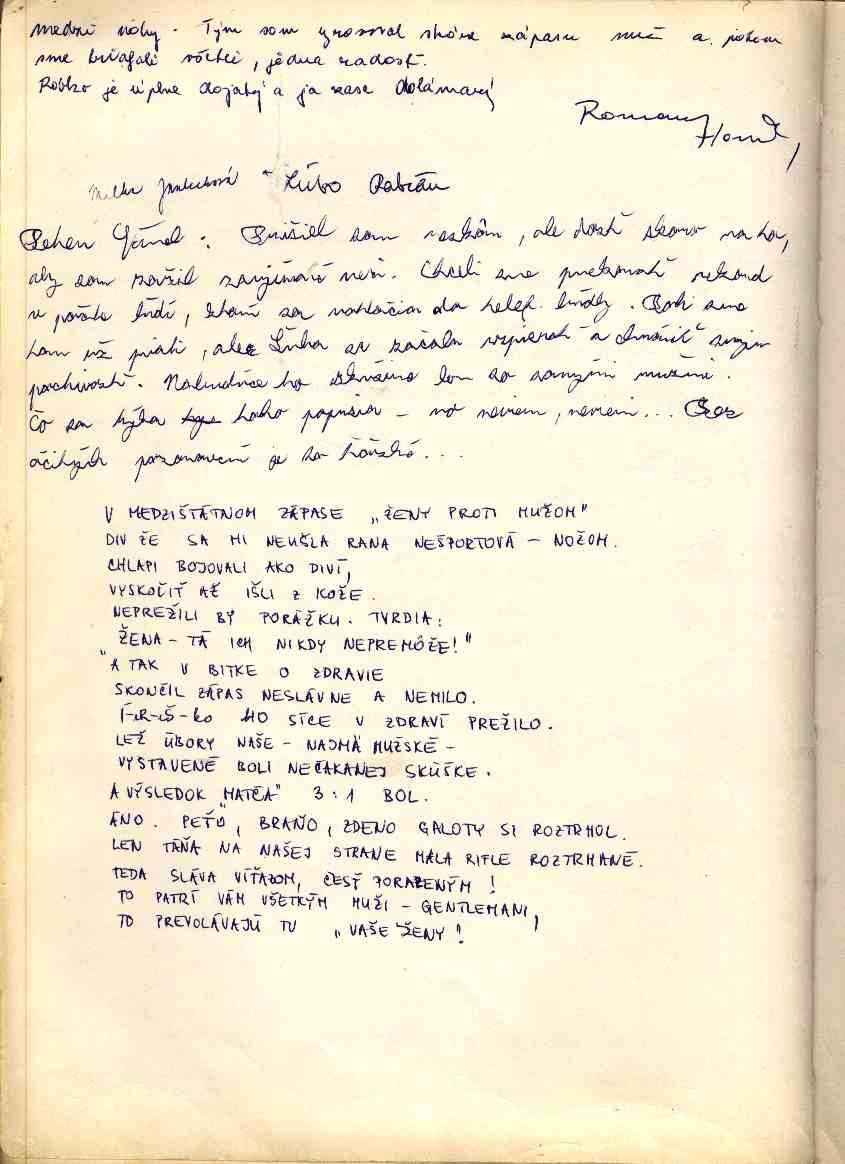 medzi nohy. Tým som vyrovnal skóre zápasu a potom
sme všetci, jedna radosť.
Robko je úplne dojatý a ja zase dolámaný
Roman
Ľubo Fabián
Prišiel som, ale dosť skoro na to,
aby som zažil. Chceli sme prekonať rekord
v počte ľudí, ktorí sa do telef. búdky. Boli sme
tam už piati, ale Ľuba sa začala vzpierať a chrániť svoju
počtivosť. Nabudúce to skúsime len so samými mužmi.
Čo sa týka toho – no neviem, neviem... Bez
je to ťažké...
V MEDZIŠTÁTNOM ZÁPASE „ŽENY PROTI MUŽOM"
DIV ŽE SA MI NEUŠLA RANA NEŠPORTOVÁ – NOŽOM.
CHLAPI BOJOVALI AKO DIVÍ,
VYSKOČIŤ AŽ IŠLI Z KOŽE.
NEPREŽILI BY PORÁŽKU. TVRDIA:
„ŽENA – TÁ ICH NIKDY NEPREMÔŽE!"
A TAK V BITKE O ZDRAVIE
SKONČIL ZÁPAS NESLÁVNE A NEMILO.
HO SÍCE V ZDRAVÍ PREŽILO.
LEŽ ÚBORY NAŠE – NAJMÄ MUŽSKÉ –
VYSTAVENÉ BOLI NEČAKANEJ SKÚŠKE.
A VÝSLEDOK „MATČA" 3:1 BOL.
ÁNO. PEŤO, BRAŇO, ZDENO GALOTY SI ROZTRHOL.
LEN TÁŇA NA NAŠEJ STRANE MALA RIFLE ROZTRHANÉ.
TEDA SLÁVA VÍŤAZOM, ČESŤ PORAZENÝM!
TO PATRÍ VÁM VŠETKÝM MUŽI – GENTLEMANI,
TO PREVOLÁVAJÚ TU „VAŠE ŽENY!